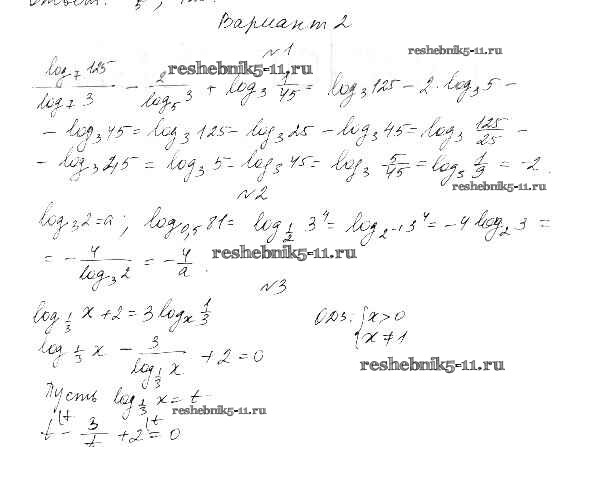 Вариант 2
№1
reshebnik5-11.ru
reshebnik5-11.ru
log₇125/log₇3 − 2/log₅3 + log₃ 1/45 = log₃125 − 2·log₃5 −
− log₃45 = log₃125 − log₃25 − log₃45 = log₃ 125/25 −
− log₃45 = log₃5 − log₃45 = log₃ 5/45 = log₃ 1/9 = −2.
reshebnik5-11.ru
№2
log₃2=a; log₀,₅81 = log_{1/2} 3⁴ = log_{2⁻¹} 3⁴ = −4log₂3 =
= − 4/log₃2 = − 4/a.
reshebnik5-11.ru
№3
log_{1/3} x + 2 = 3 log_x 1/3
ОДЗ: {x>0
{x≠1
log_{1/3} x − 3/log_{1/3} x + 2 = 0
reshebnik5-11.ru
Пусть log_{1/3} x = t
reshebnik5-11.ru
t − 3/t + 2 = 0